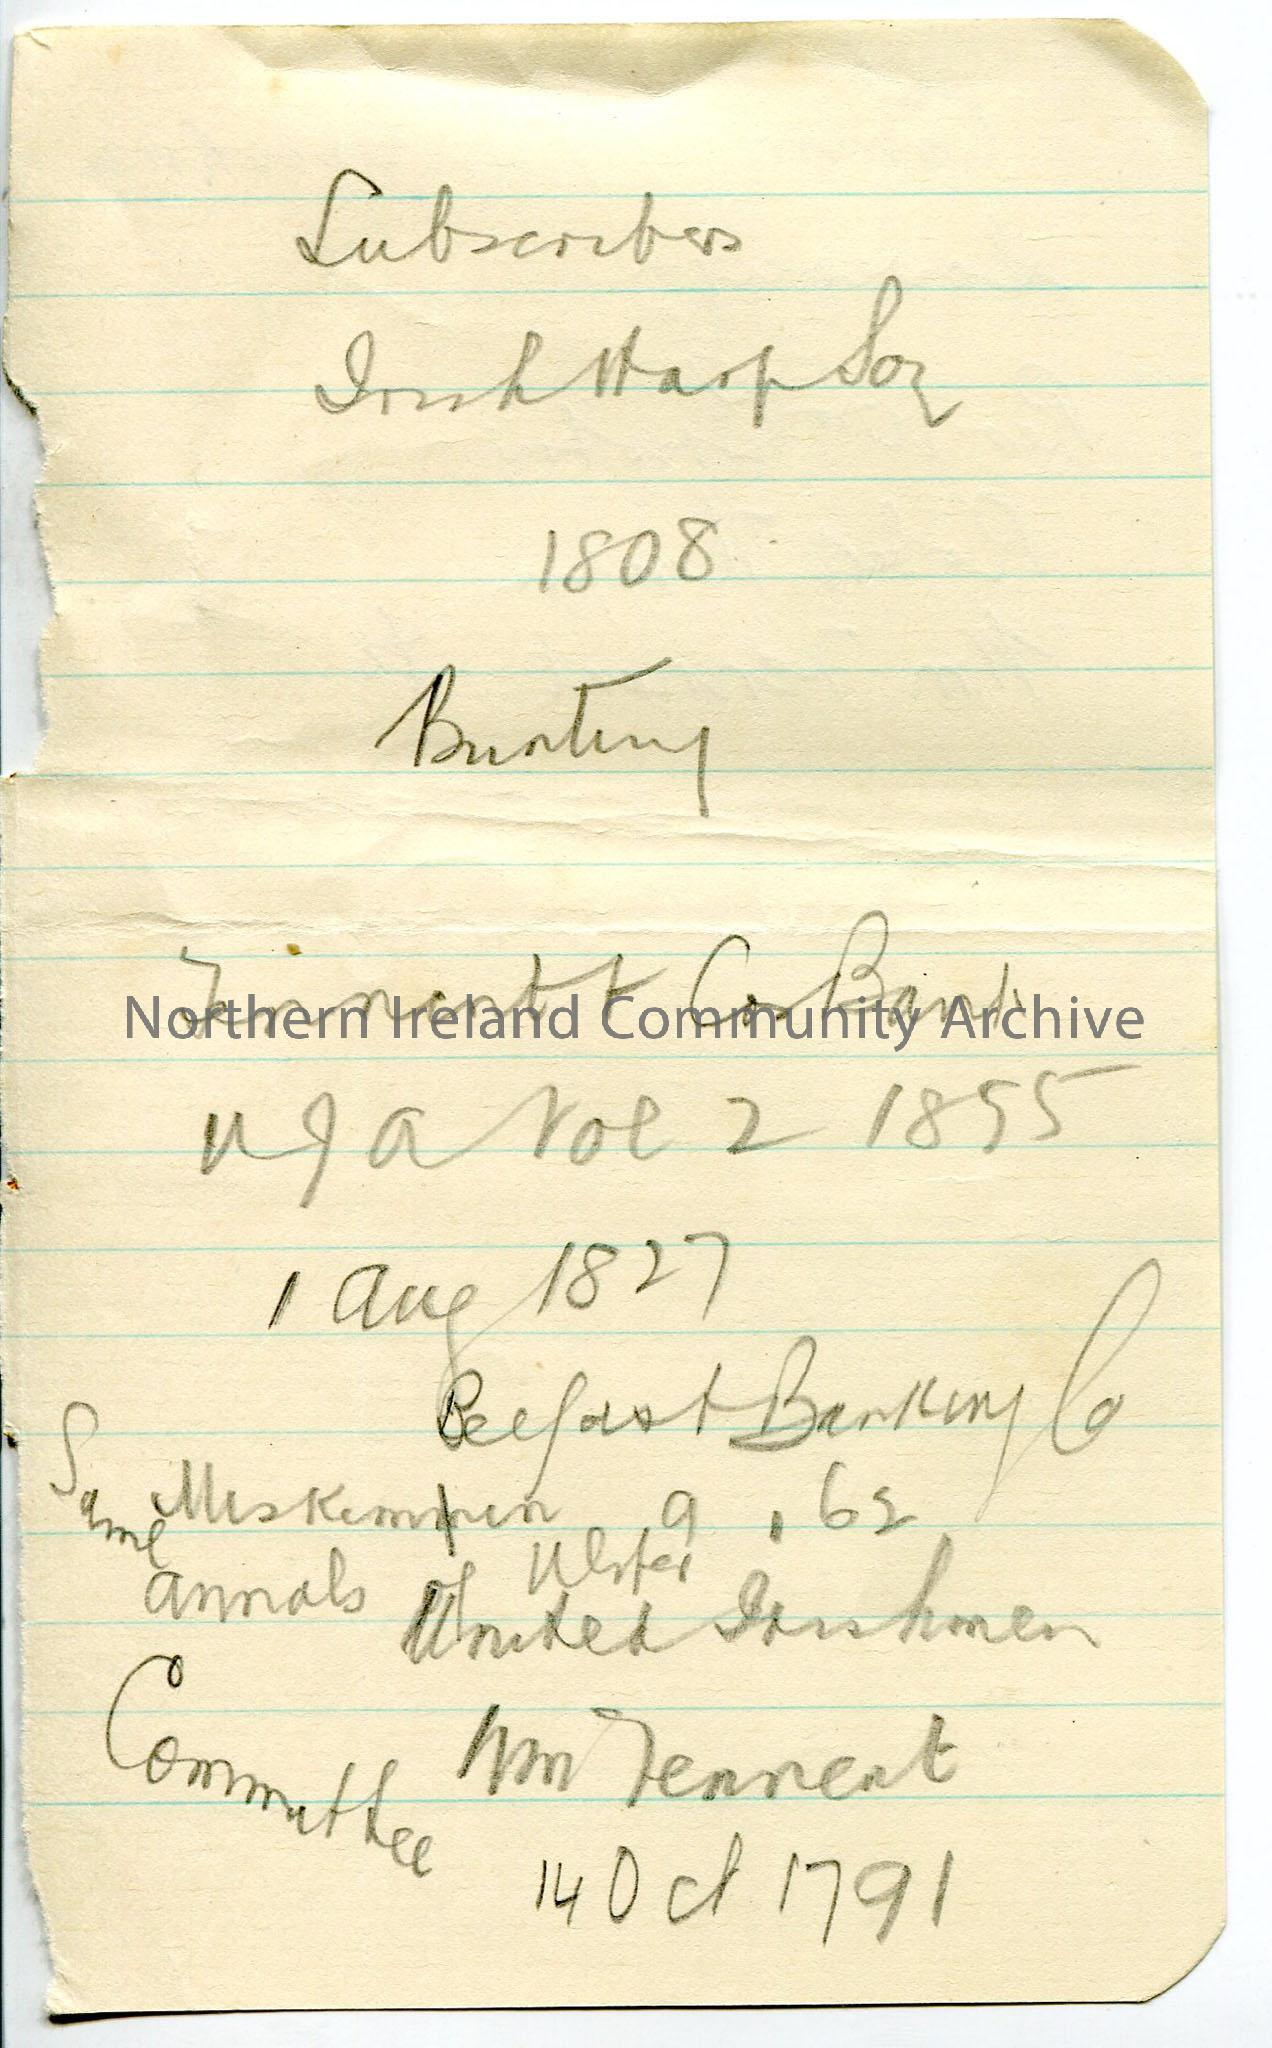 Subscribers
Irish Harp Socy
1808
Bunting
Tennent & Cos Bank
Northern Ireland Community Archive
U J A Vol 2 1855
1 Aug 1827
Belfast Banking Co
Same 9 . 62
Annals of Ulster
United Irishmen
Committee Wm Tennent
14 Oct 1791